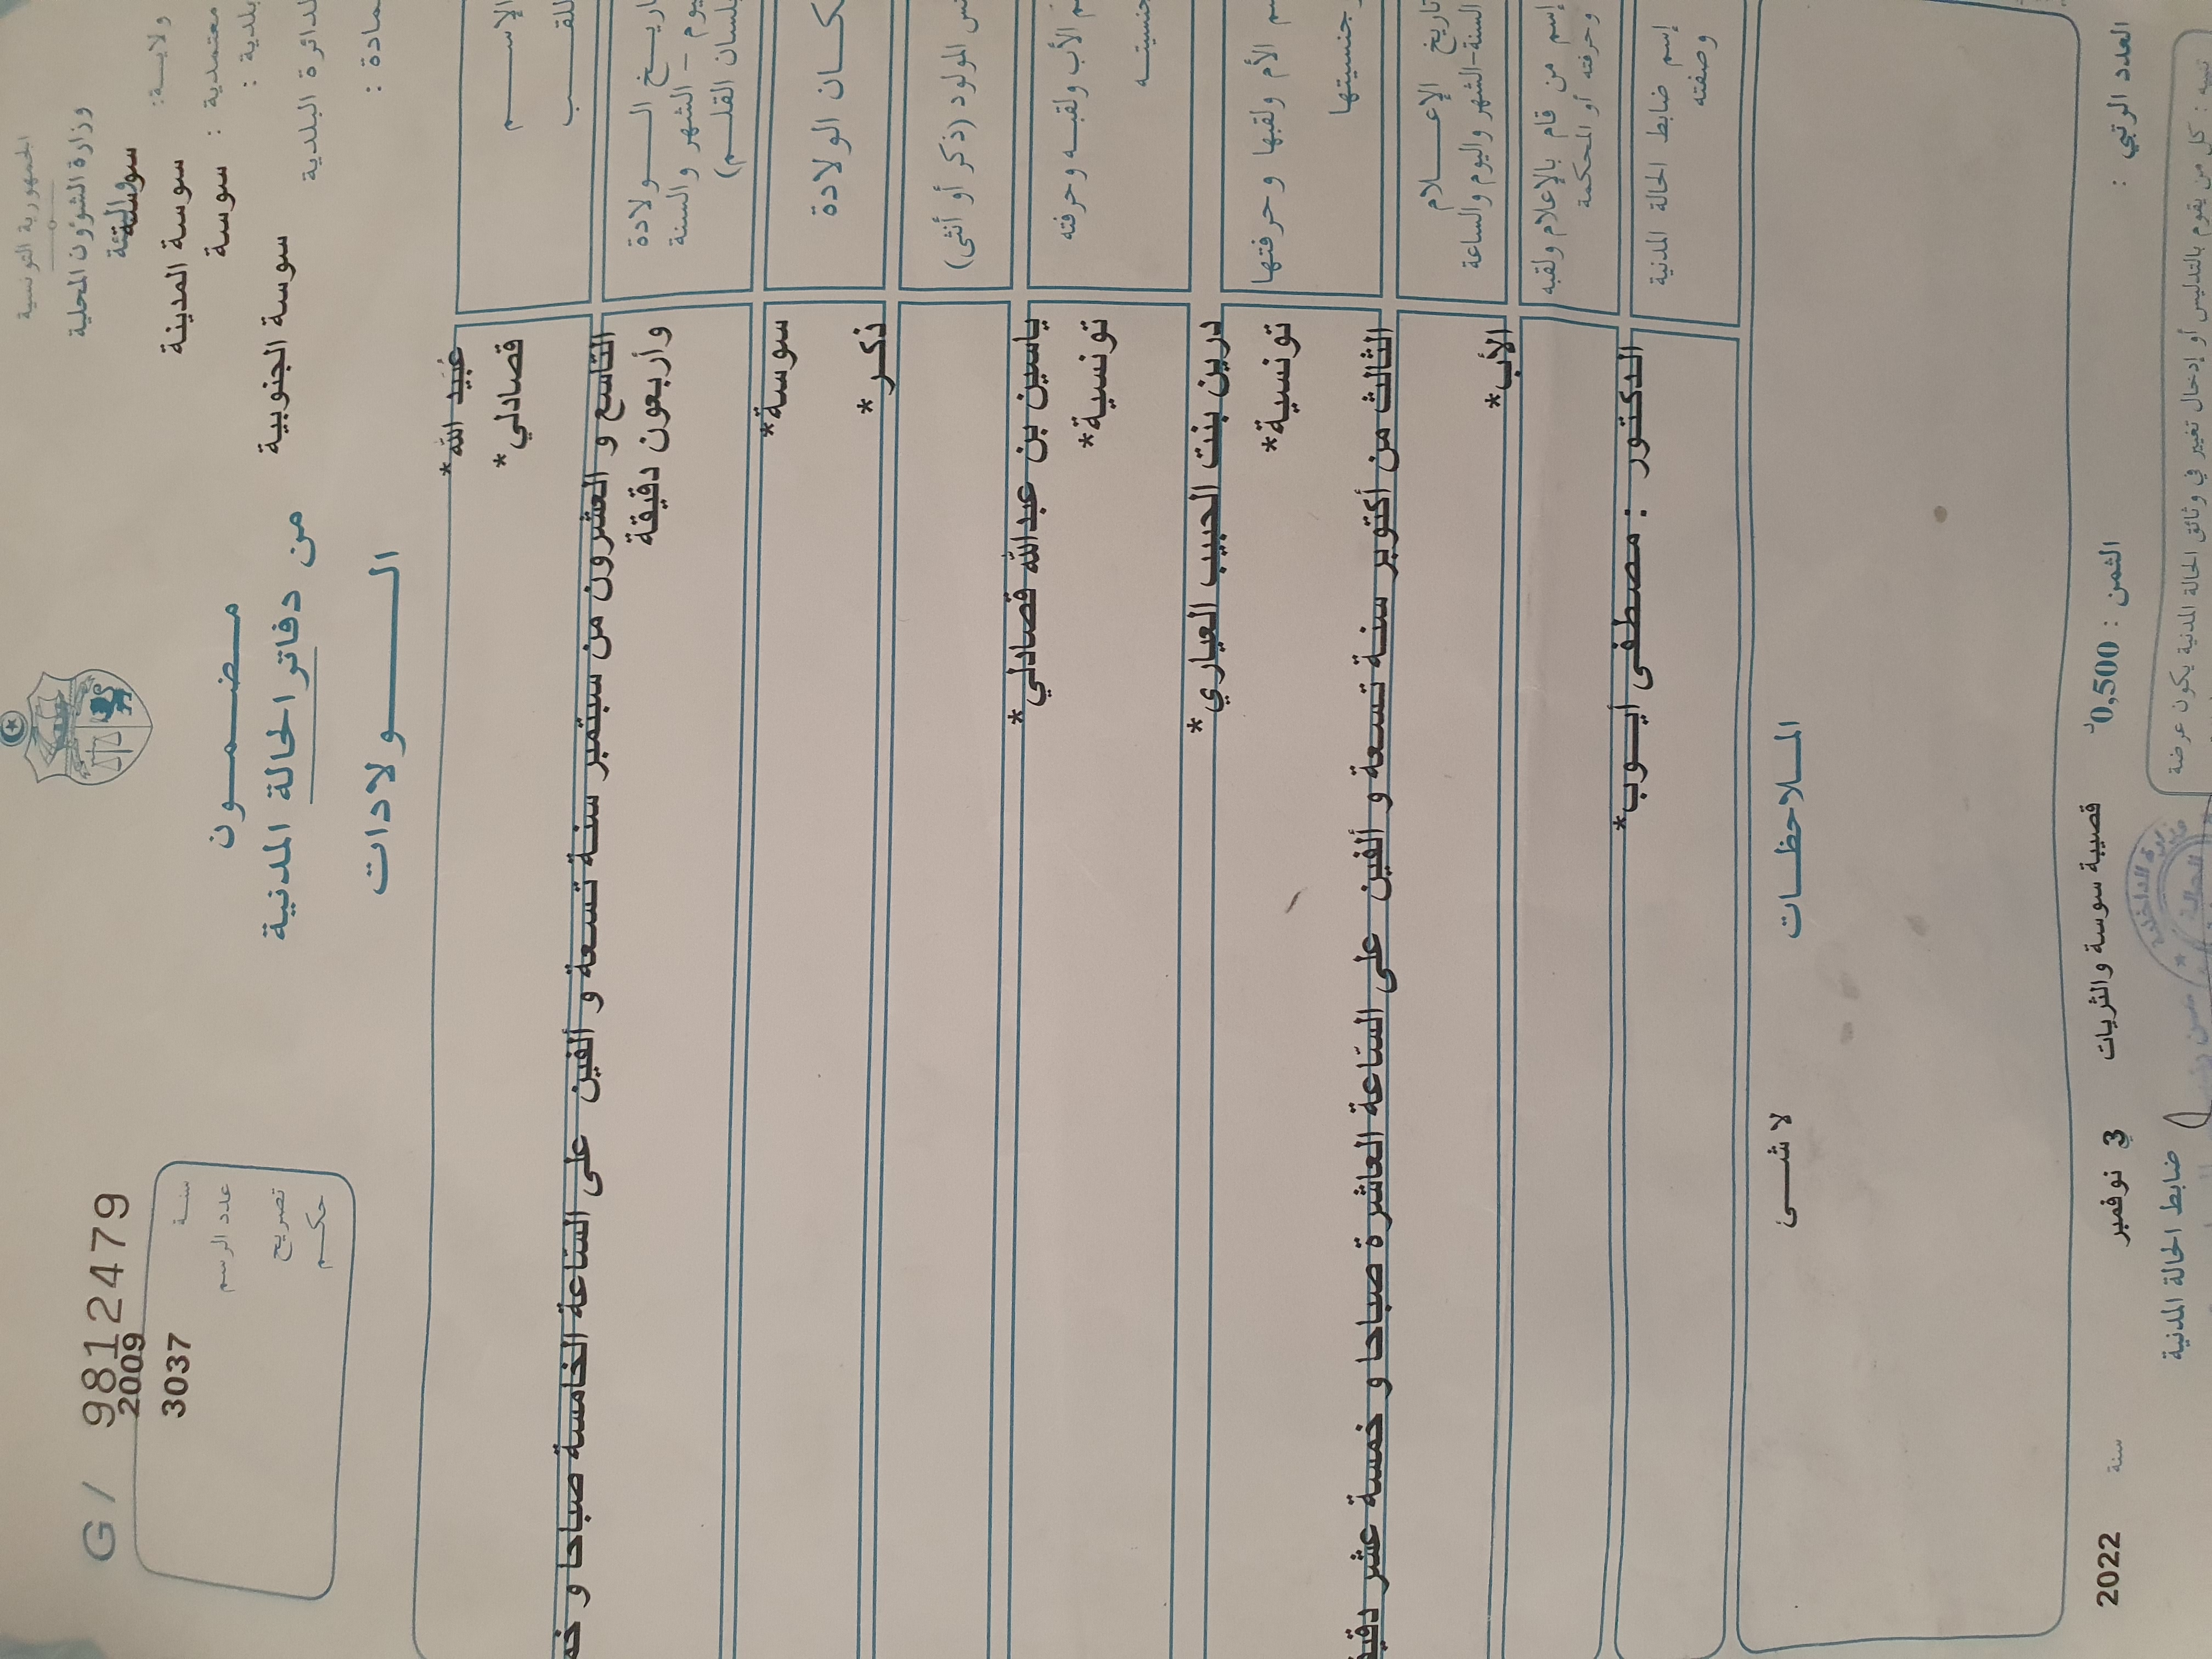 الجمهورية التونسية
وزارة الشؤون المحلية
والبيئة
ولايـــة: سوسة
معتمدية : سوسة المدينة
بلدية : سوسة
الدائرة البلدية سوسة الجنوبية
مادة :
مـضـمـــون
من دفاتر الحالة المدنية
الـــولادات
G / 9812479
سنــة 2009
عدد الرسم 3037
تصريح
حكـم
الإســـم عُبَيد الله*
اللقـــب قصادلي*
تاريـــخ الـــولادة
اليوم - الشهر والسنة
(بلسان القلـــم)
التاسع و العشرون من سبتمبر سنـة تسعة و ألفين على السّاعة الخامسة صباحا و
وأربعون دقيقة
مكـان الولادة سوسة*
المولود (ذكر أو أنثى) ذكـر*
الأب ولقبـه وحرفته ياسين بن عبدالله قصادلي*
جنسيتــه تونسية*
الأم ولقبها وحرفتـها درين بنت الحبيب العياري*
جنسيتها تونسية*
تاريخ الإعـــلام
السنة-الشهر واليوم والساعة
الثالث من أكتوبر سنـة تسعة و ألفين على السّاعة العاشرة صباحا و خمسة عشر
إسم من قام بالإعلام ولقبه
وحرفته أو المحكمة
الأب*
إسم ضابط الحالة المدنية
وصفته
الدكتور : مصطفى أيـوب*
المـلاحظـات
لا شـــئ
العدد الرتبي :
الثمن : 0,500د
قصيبة سوسة والثريات
في 3 نوفمبر
سنة 2022
ضابط الحالة المدنية
كل من يقوم بالتدليس أو إدخال تغيير في وثائق الحالة المدنية يكون عرضة
وزارة الداخلية